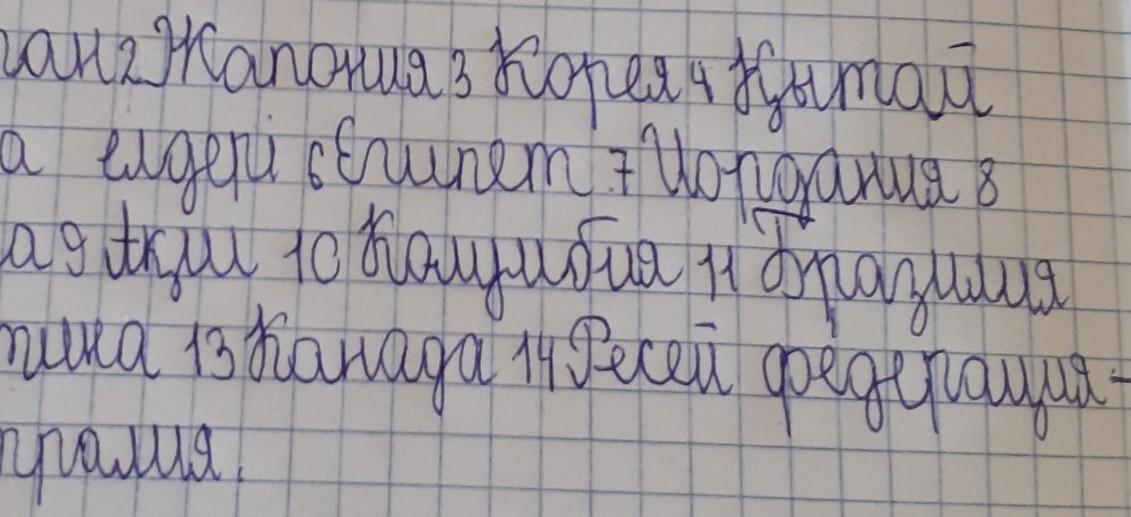 ган 2 Жапония 3 Корея 4 Қытай
а елдері 6 Египет 7 Иордания 8
а 9 АҚШ 10 Колумбия 11 Бразилия
тина 13 Канада 14 Ресей федерация-
тралия.